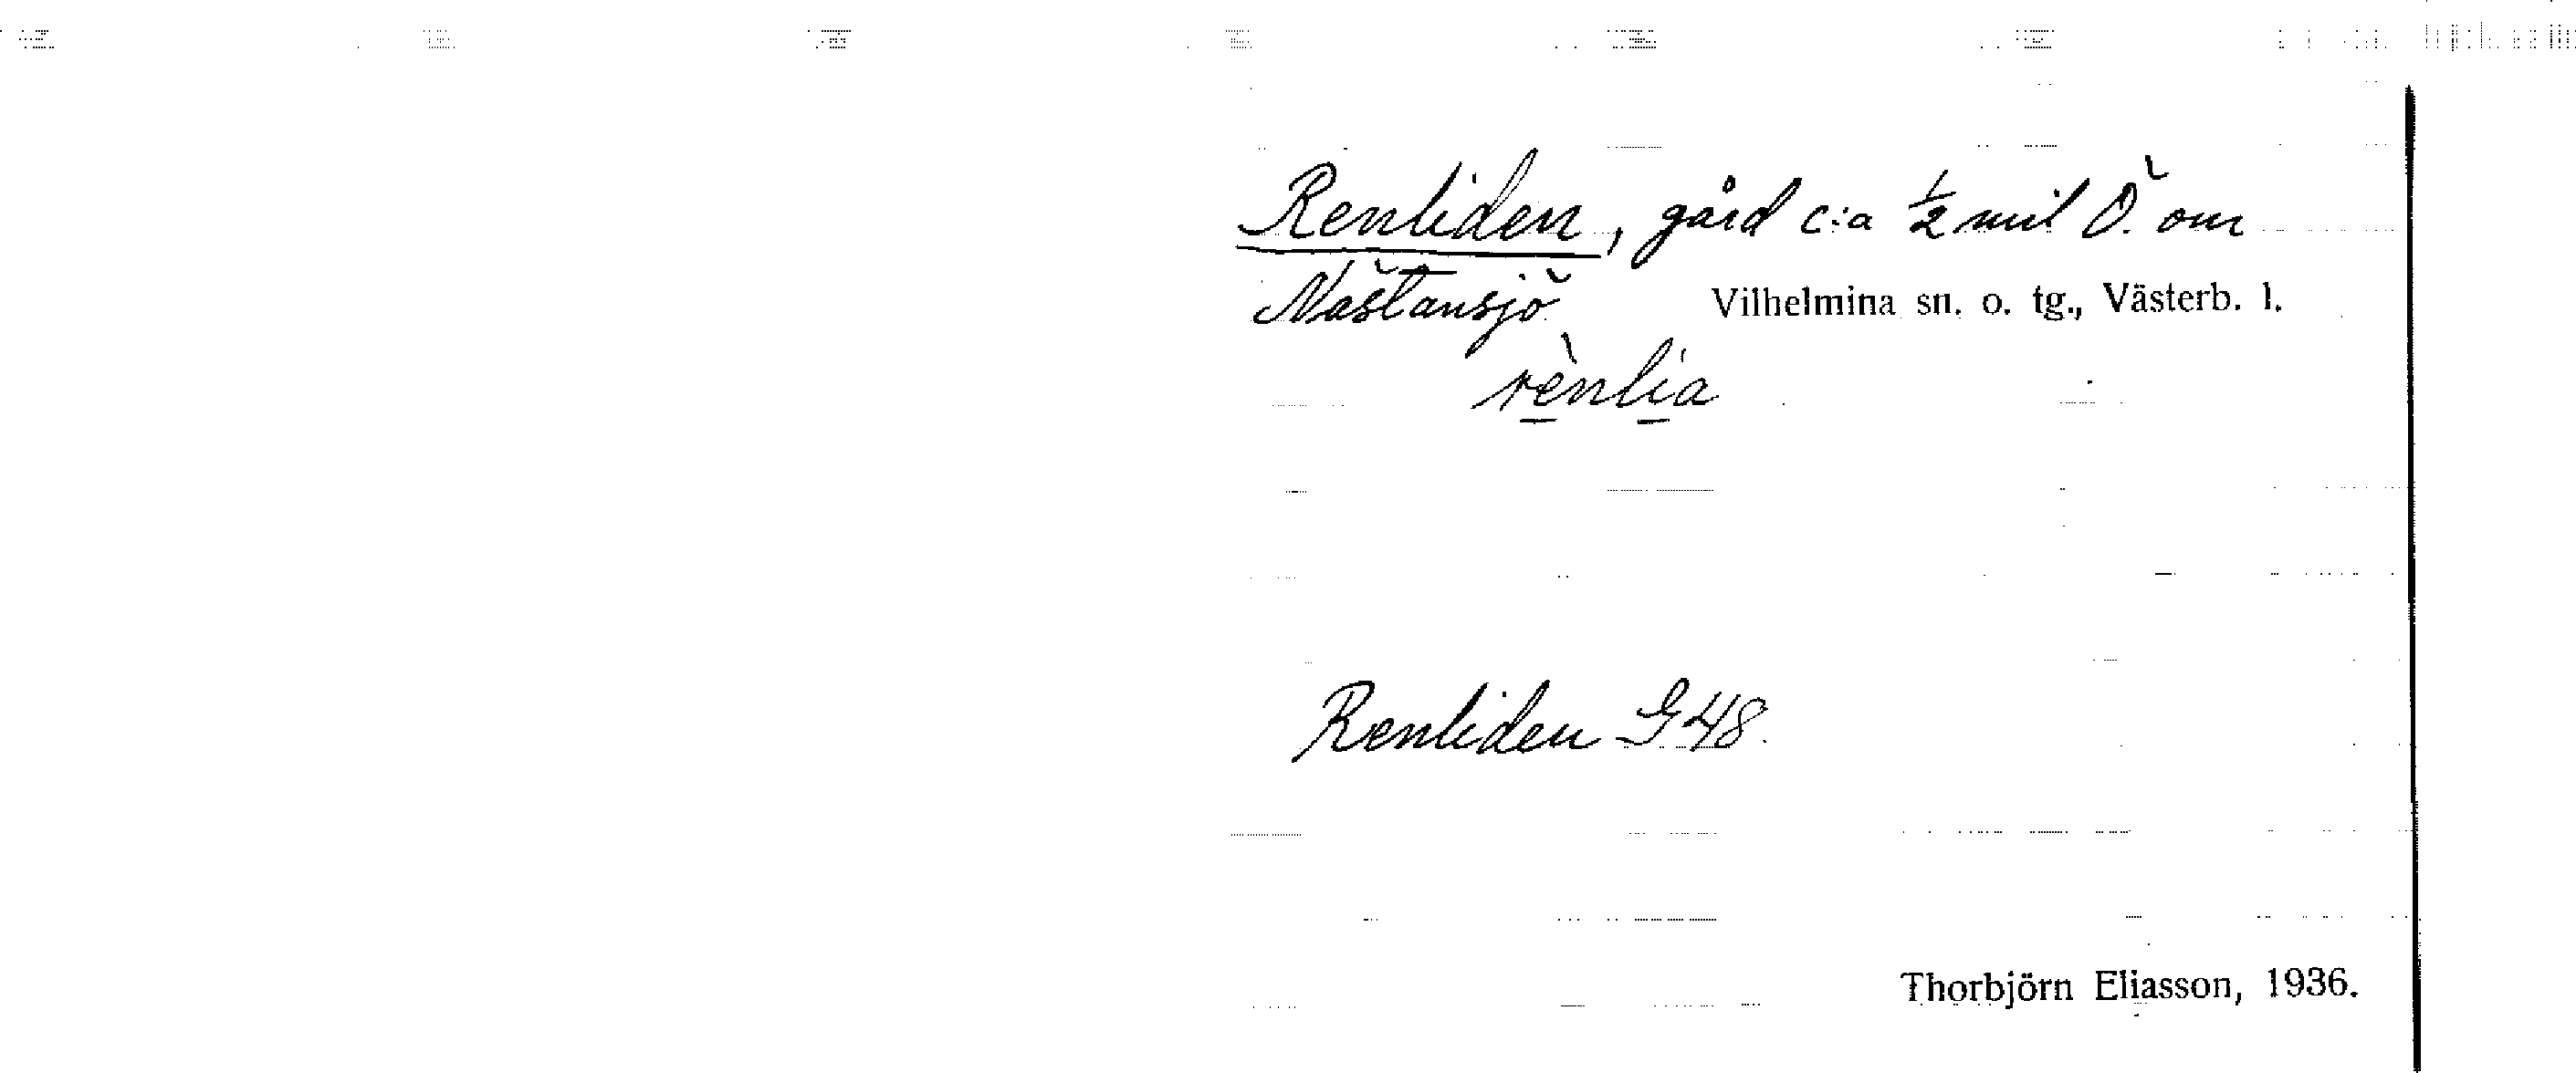 Renliden, gård c:a ½ mil Ö. om
Nästansjö Vilhelmina sn. o. tg., Västerb. l.
rènlia
Renliden G 48.
Thorbjörn Eliasson, 1936.